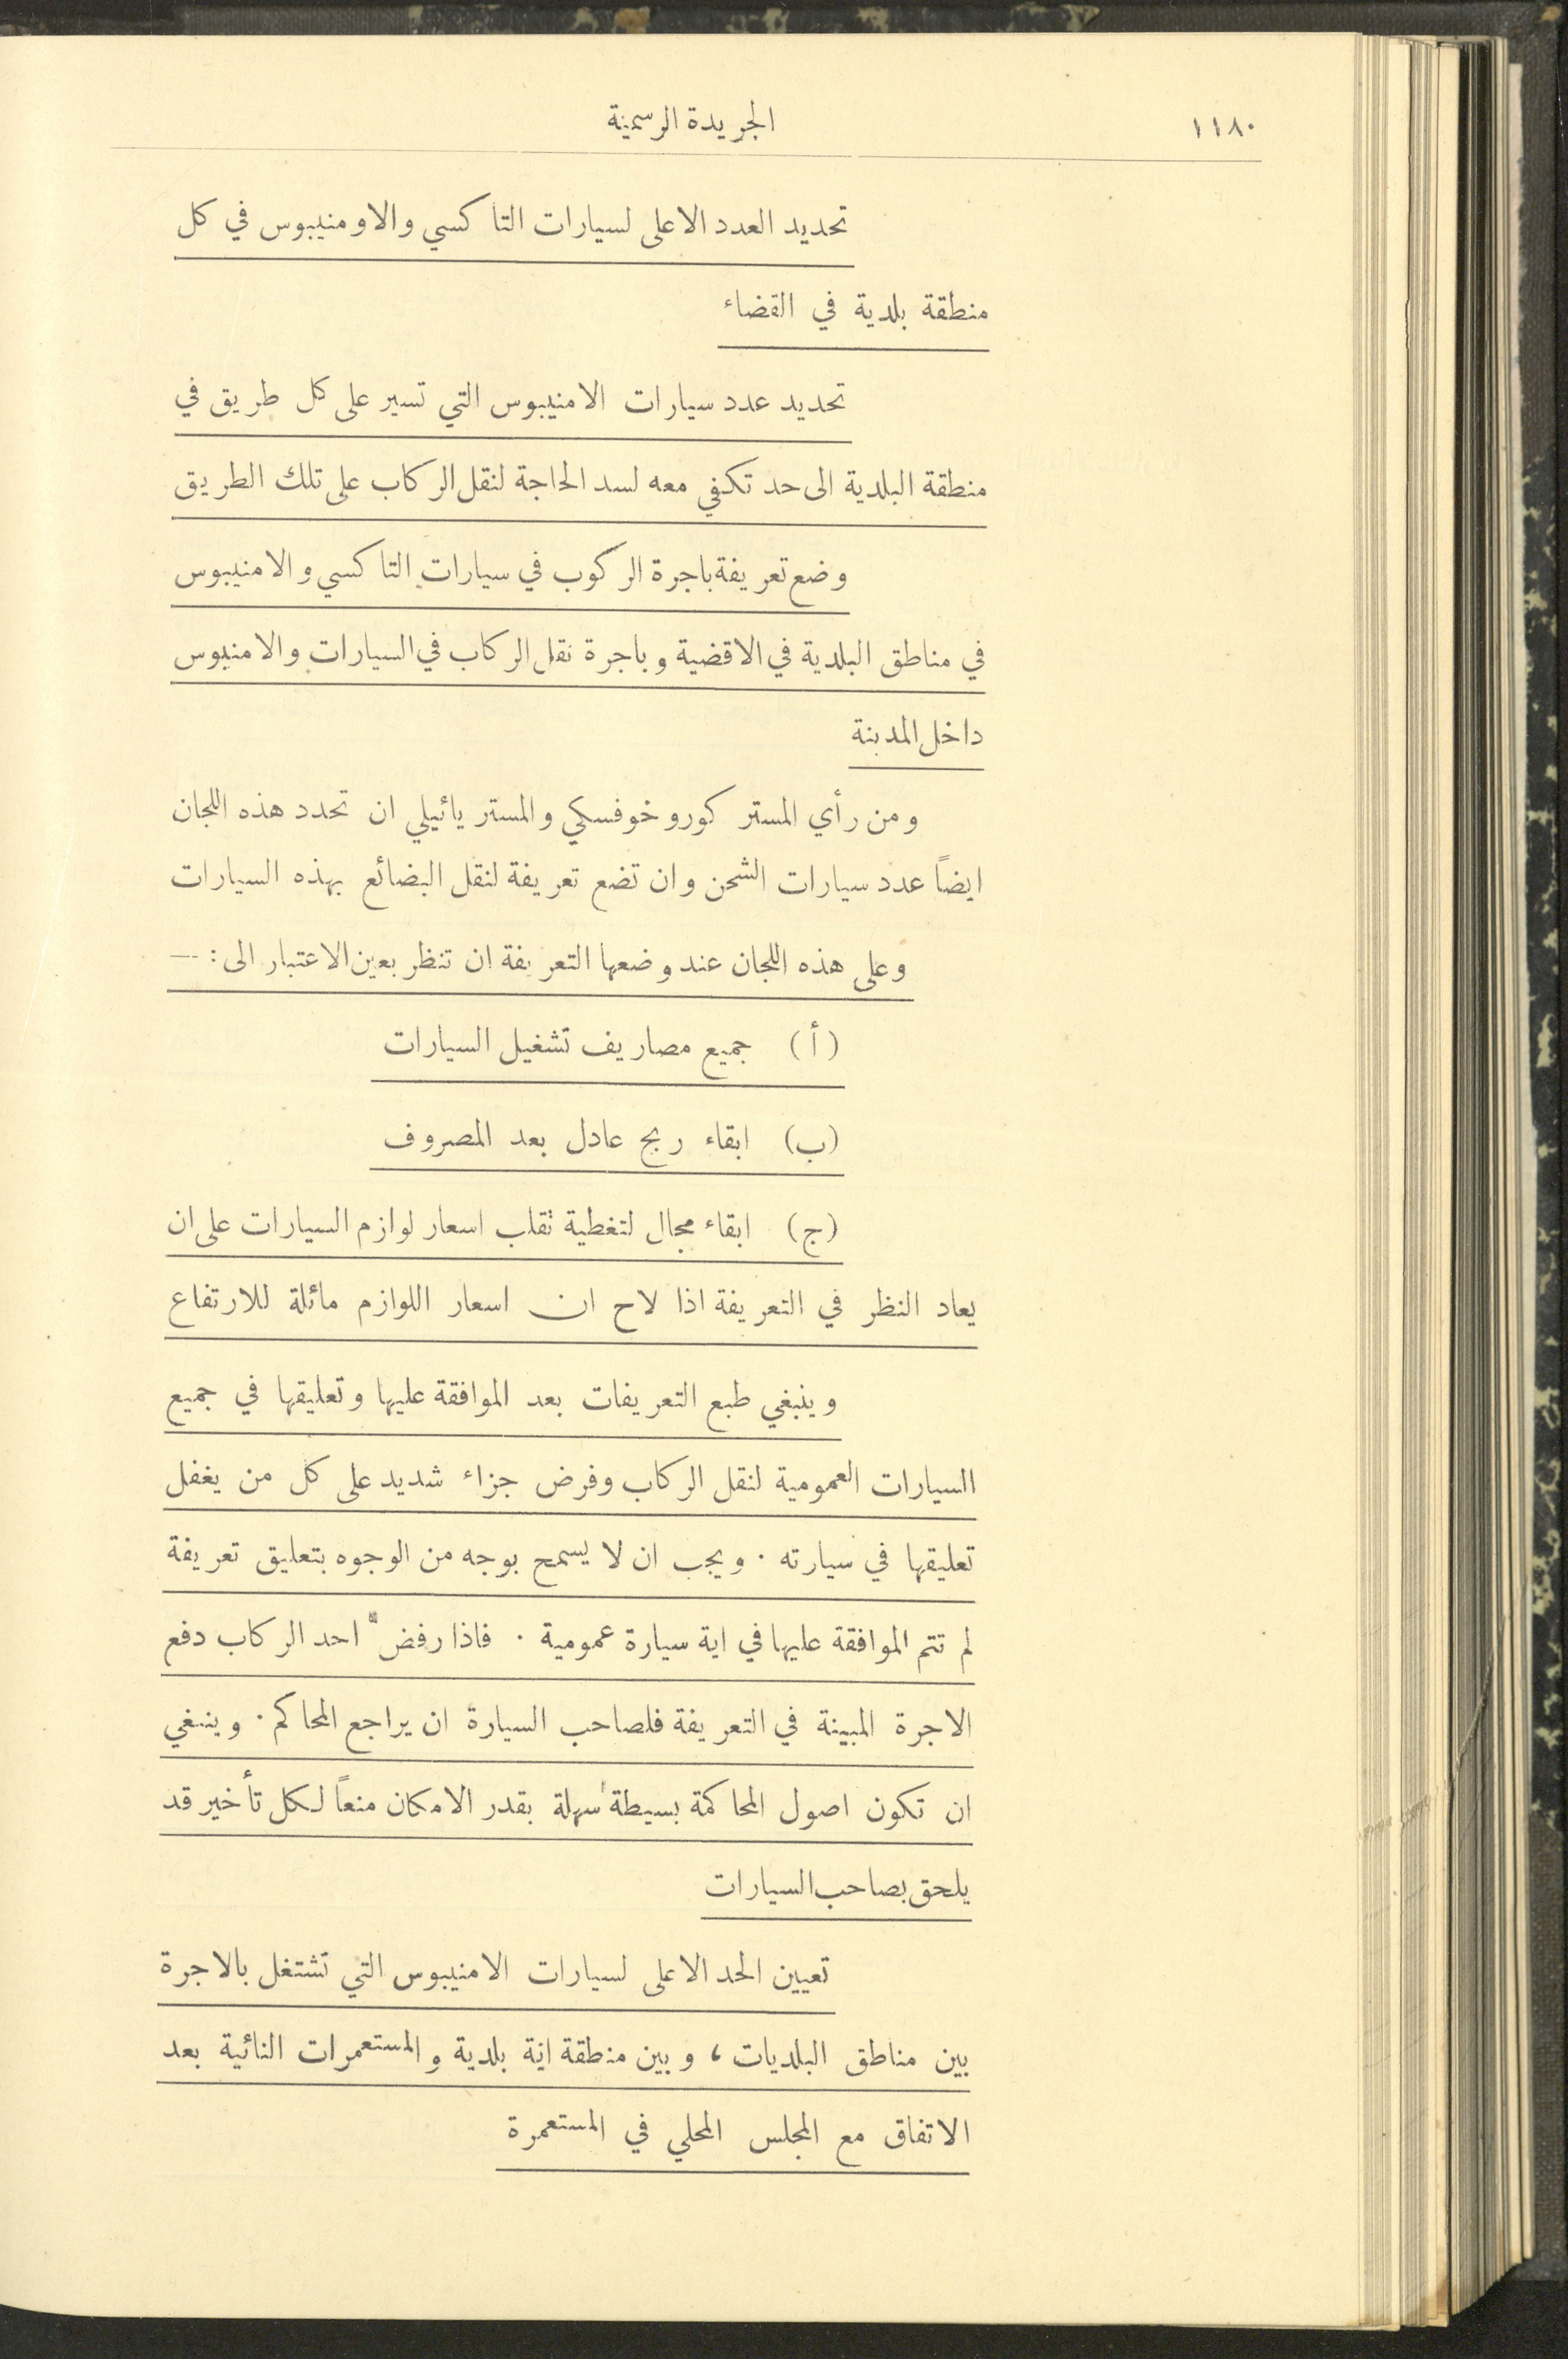 ١١٨٠
الجريدة الرسمية
تحديد العدد الاعلى لسيارات التاكسي والاومنيبوس في كل
منطقة بلدية في القضاء
تحديد عدد سيارات الامنيبوس التي تسير على كل طريق في
منطقة البلدية الى حد تكفي معه لسد الحاجة لنقل الركاب على تلك الطريق
وضع تعريفة باجرة الركوب في سيارات التاكسي والامنيبوس
في مناطق البلدية في الاقضية وباجرة نقل الركاب في السيارات والامنيبوس
داخل المدينة
ومن رأي المستر كوروخوفسكي والمستر يائيلي ان تحدد هذه اللجان
ايضاً عدد سيارات الشحن وان تضع تعريفة لنقل البضائع بهذه السيارات
وعلى هذه اللجان عند وضعها التعريفة ان تنظر بعين الاعتبار الى : —
(أ) جميع مصاريف تشغيل السيارات
(ب) ابقاء ربح عادل بعد المصروف
(ج) ابقاء مجال لتغطية تقلب اسعار لوازم السيارات على ان
يعاد النظر في التعريفة اذا لاح ان اسعار اللوازم مائلة للارتفاع
وينبغي طبع التعريفات بعد الموافقة عليها وتعليقها في جميع
السيارات العمومية لنقل الركاب وفرض جزاء شديد على كل من يغفل
تعليقها في سيارته . ويجب ان لا يسمح بوجه من الوجوه بتعليق تعريفة
لم تتم الموافقة عليها في اية سيارة عمومية . فاذا رفض احد الركاب دفع
الاجرة المبينة في التعريفة فلصاحب السيارة ان يراجع المحاكم . وينبغي
ان تكون اصول المحاكمة بسيطة سهلة بقدر الامكان منعاً لكل تأخير قد
يلحق بصاحب السيارات
تعيين الحد الاعلى لسيارات الامنيبوس التي تشتغل بالاجرة
بين مناطق البلديات ، وبين منطقة اية بلدية والمستعمرات النائية بعد
الاتفاق مع المجلس المحلي في المستعمرة